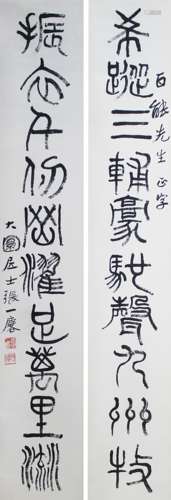 希蹤三輔豪馳聲九州牧
百能先生 正字
振衣千仞岡濯足萬里流
大圜居士張一麐